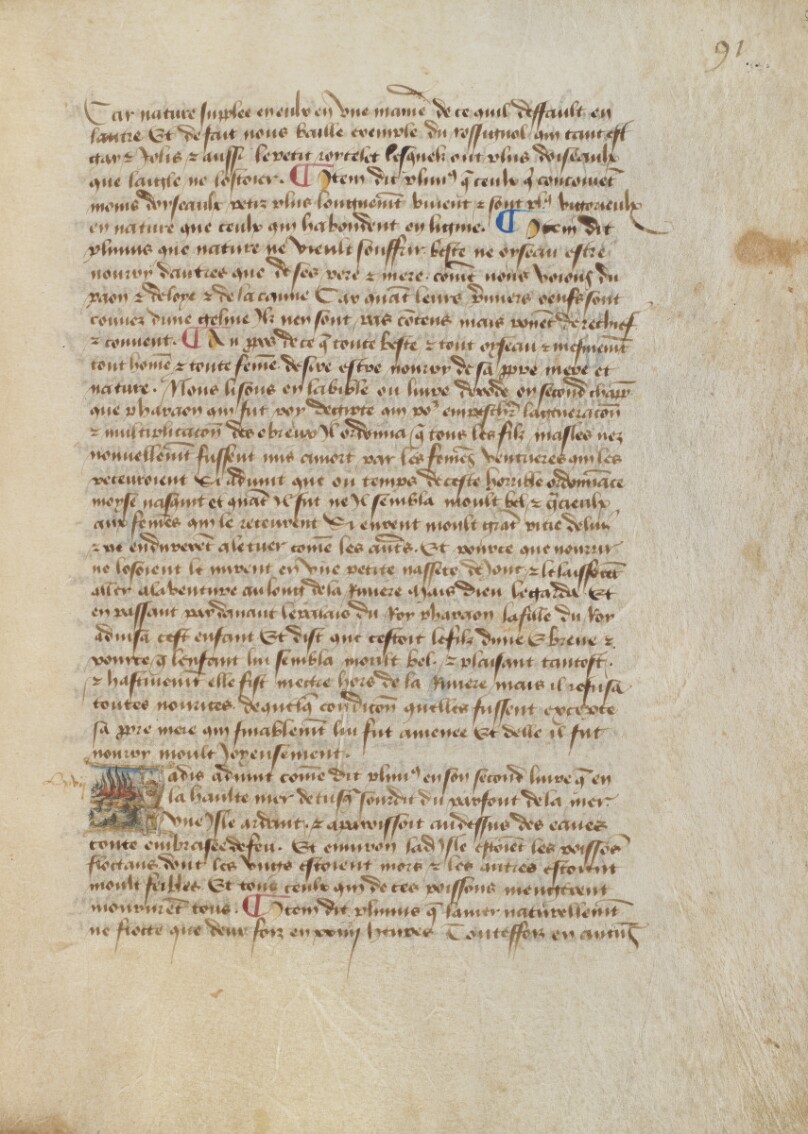 91
Car nature supplee en eulx en une maniẽ de ce quil deffault en
lautre Et de fait nous baille exemple du rossignol qui tant est
gay ⁊ Jolis ⁊ aussi le petit roytelet lesquelz ont plus doiseaulx
que laigle ne lostoier. ¶ Item dit pliniꝰ q̃ ceulx q̃ concoivẽt
moins doyseaulx petiz plus longuem̃t vivent ⁊ sont plꝰ vigoreulx
en nature que ceulx qui habondent en lignie. ¶ Item dit
plinius que nature ne vieult souffrir beste ne oyseau estre
nourry dautres que de ses pere ⁊ mere. com̃e nous voions du
paon ⁊ de loye ⁊ de la canne Car quãt leurs p̃miers oeufz sont
couvez dune geline Ilz nen sont pas cõtens mais ponẽt de rechief
⁊ couvent. ¶ Au ꝓpos de ce q̃ toute beste ⁊ tout oyseau ⁊ mesmem̃t
tout hom̃e ⁊ toute fem̃e desire estre nourry de sa ꝓpre mere et
nature. Nous lisons en la bible ou livre dexode en second chap̃ẽ
que pharaon qui fut roy degipte qui poꝰ empeschr̃ la generacõn
⁊ multiplicacõn des ebreux Il ordonna q̃ tous les filz masles nez
nouvellem̃t fussent mis a mort par les fem̃es ventrieres qui les
recevroient Si advint que ou temps de ceste horrible ordonnãce
moyse nasquit et quãt Il fut ne Il sembla moult bel ⁊ gracieulx
aux fem̃es qui le receurent Si eurent moult grãt pitie de lui
⁊ ne endurerẽt a le tuer com̃e les aut̃s. Et pource que nourrir
ne losoient le mirent en une petite nasselle de Jonc ⁊ le laisserẽt
aller a laventure au long de la Riviere Mais dieu le garda Et
en passant par devant le palais du Roy pharaon la fille du Roy
advisa cest enfant Et dist que cestoit le filz dune Ebreue ⁊
pource q̃ lenfant lui sembla moult bel ⁊ plaisant tantost
⁊ hastivem̃t elle fist mectre hors de la Riviere mais il refusa
toutes nourices de quelq̃ condicõn quelles fussent excepte
sa ꝓpre mere qui finablem̃t lui fut amenee Et delle il fut
nourry moult Joyeusement.
Jadis advint com̃e dit pliniꝰ en son second livre q̃ en
la haulte mer de tusq̃ sourdit du parfont de la mer
une Isle ardant ⁊ apparoissoit au dessus des eaues
toute embrasee de feu. Et environ lad Isle estoiẽt les poissõs
flotans dont les ungs estoient mors ⁊ les autres estoient
moult feibles Et tous ceulx qui de ces poissons mengerent
moururẽt tous. ¶ Item dit plinius q̃ la mer naturellem̃t
ne flotte que deux foiz en xxiiij heures Touteffoiz en autũs